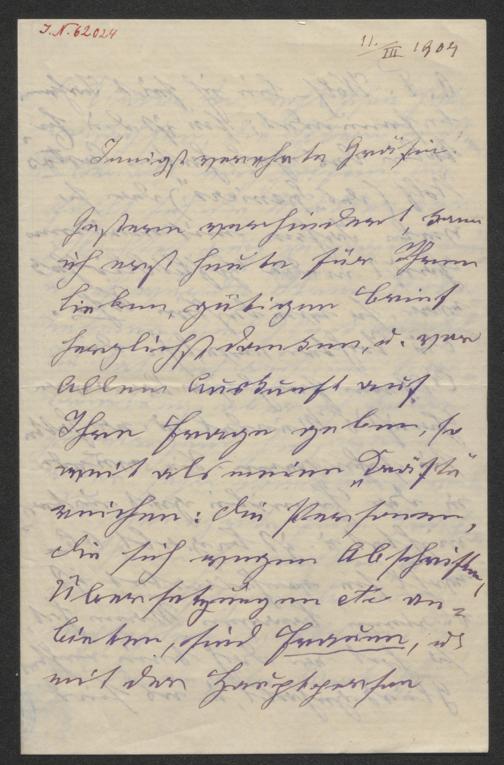 I.N. 62024
11./III 1909
Innigst verehrte Gräfin!
Gestern verhindert, kann
ich erst heute für Ihren
lieben, gütigen Brief
herzlichst danken, u. vor
Allem Auskunft auf
Ihre Frage geben, so
weit als meine „Kräfte"
reichen: die Personen,
die sich wegen Abschriften,
Übersetzungen etc an=
bieten, sind Frauen, u.
mit der Hauptperson